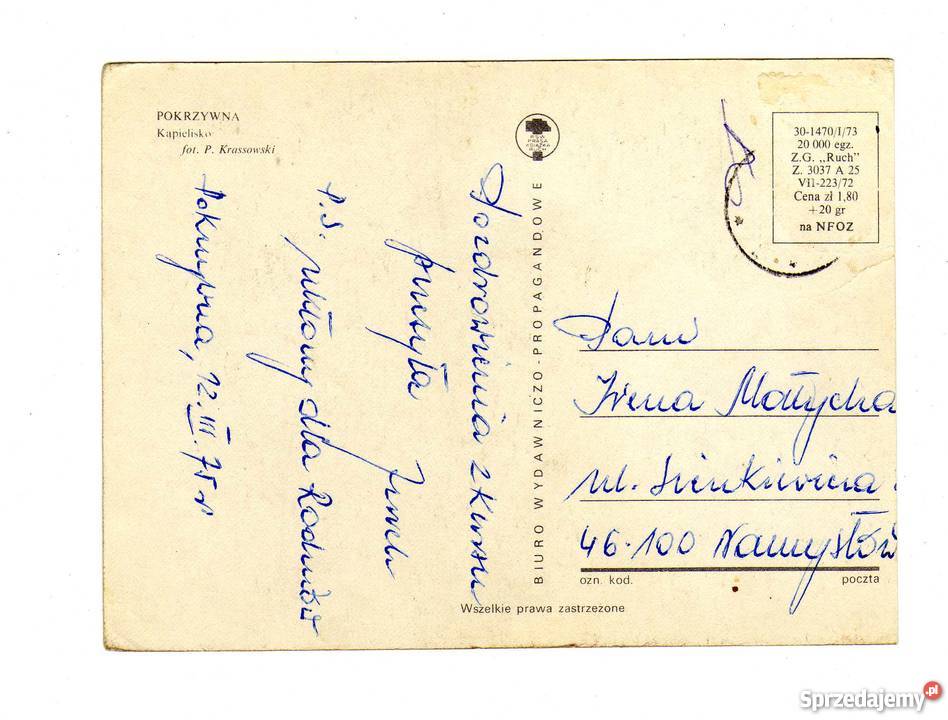 POKRZYWNA
Kąpielisko
fot. P. Krassowski
RSW
PRASA
KSIĄŻKA
RUCH
30-1470/I/73
20 000 egz.
Z.G. „Ruch”
Z. 3037 A 25
VII-223/72
Cena zł 1,80
+20 gr
na NFOZ
BIURO WYDAWNICZO-PROPAGANDOWE
Pozdrowienia z kursu
przesyła
P.S. Ukłony dla Rodziców
Pokrzywna, 12.III.75 r
Pani
Irena Małycha
ul. Sienkiewicza
46-100 Namysłów
ozn. kod. poczta
Wszelkie prawa zastrzeżone
Sprzedajemy.pl